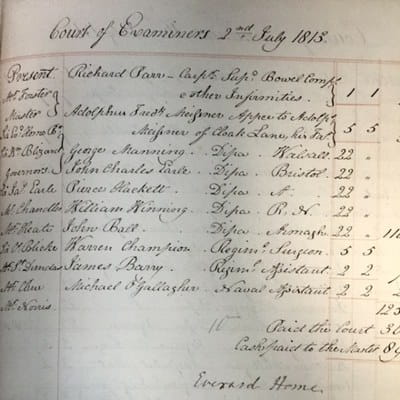 Court of Examiners 2nd July 1815.
Present
Richard Parr - Capt. Supy. Bowel Compt.
& other Infirmities. 1 1
Mr. Forster
Master
Adolphus Fredk. Meissner Appce to Adolps.
Meissner of Cloak Lane, his Fatr. 5 5
Sir Evd. Home Bt.
Sir Wm. Blizard George Manning. Dipa. Walsall. 22 "
Governors John Charles Earle. Dipa. Bristol. 22 "
Sir Jas. Earle Pierce Hackett. Dipa. A. 22 "
Mr. Chandler William Winning. Dipa. R. N. 22 "
Mr. Keate John Ball. Dipa. Armagh. 22 " 110
Sir Cs. Blicke Warren Champion. Regiml. Surgeon. 5 5
Mr. Dundas James Barry. Regiml. Assistant 2 2
Mr. Cline Michael O'Gallagher. Naval Assistant 2 2
Mr. Norris
125
Paid the Court 30
Cash paid to the Master 89
Everard Home.